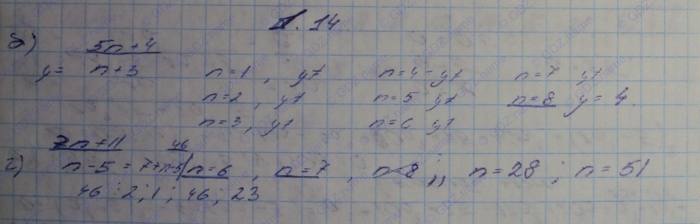 1.14
б) y = (5n+4)/(n+3)
n=1, y7 n=4 - y7 n=7 y7
n=2, y7 n=5 y7 n=8 y=4.
n=3, y7 n=6 y7
г) (7n+11)/(n-5) = 7+46/(n-5) n=6, n=7, n=8,, n=28; n=51
46 : 2; 1; 46; 23